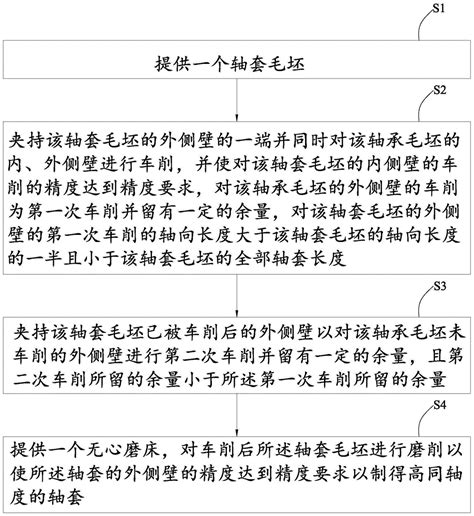 S1
提供一个轴套毛坯
S2
夹持该轴套毛坯的外侧壁的一端并同时对该轴承毛坯的
内、外侧壁进行车削，并使对该轴套毛坯的内侧壁的车
削的精度达到精度要求，对该轴承毛坯的外侧壁的车削
为第一次车削并留有一定的余量，对该轴套毛坯的外侧
壁的第一次车削的轴向长度大于该轴套毛坯的轴向长度
的一半且小于该轴套毛坯的全部轴套长度
S3
夹持该轴套毛坯已被车削后的外侧壁以对该轴承毛坯未
车削的外侧壁进行第二次车削并留有一定的余量，且第
二次车削所留的余量小于所述第一次车削所留的余量
S4
提供一个无心磨床，对车削后所述轴套毛坯进行磨削以
使所述轴套的外侧壁的精度达到精度要求以制得高同轴
度的轴套